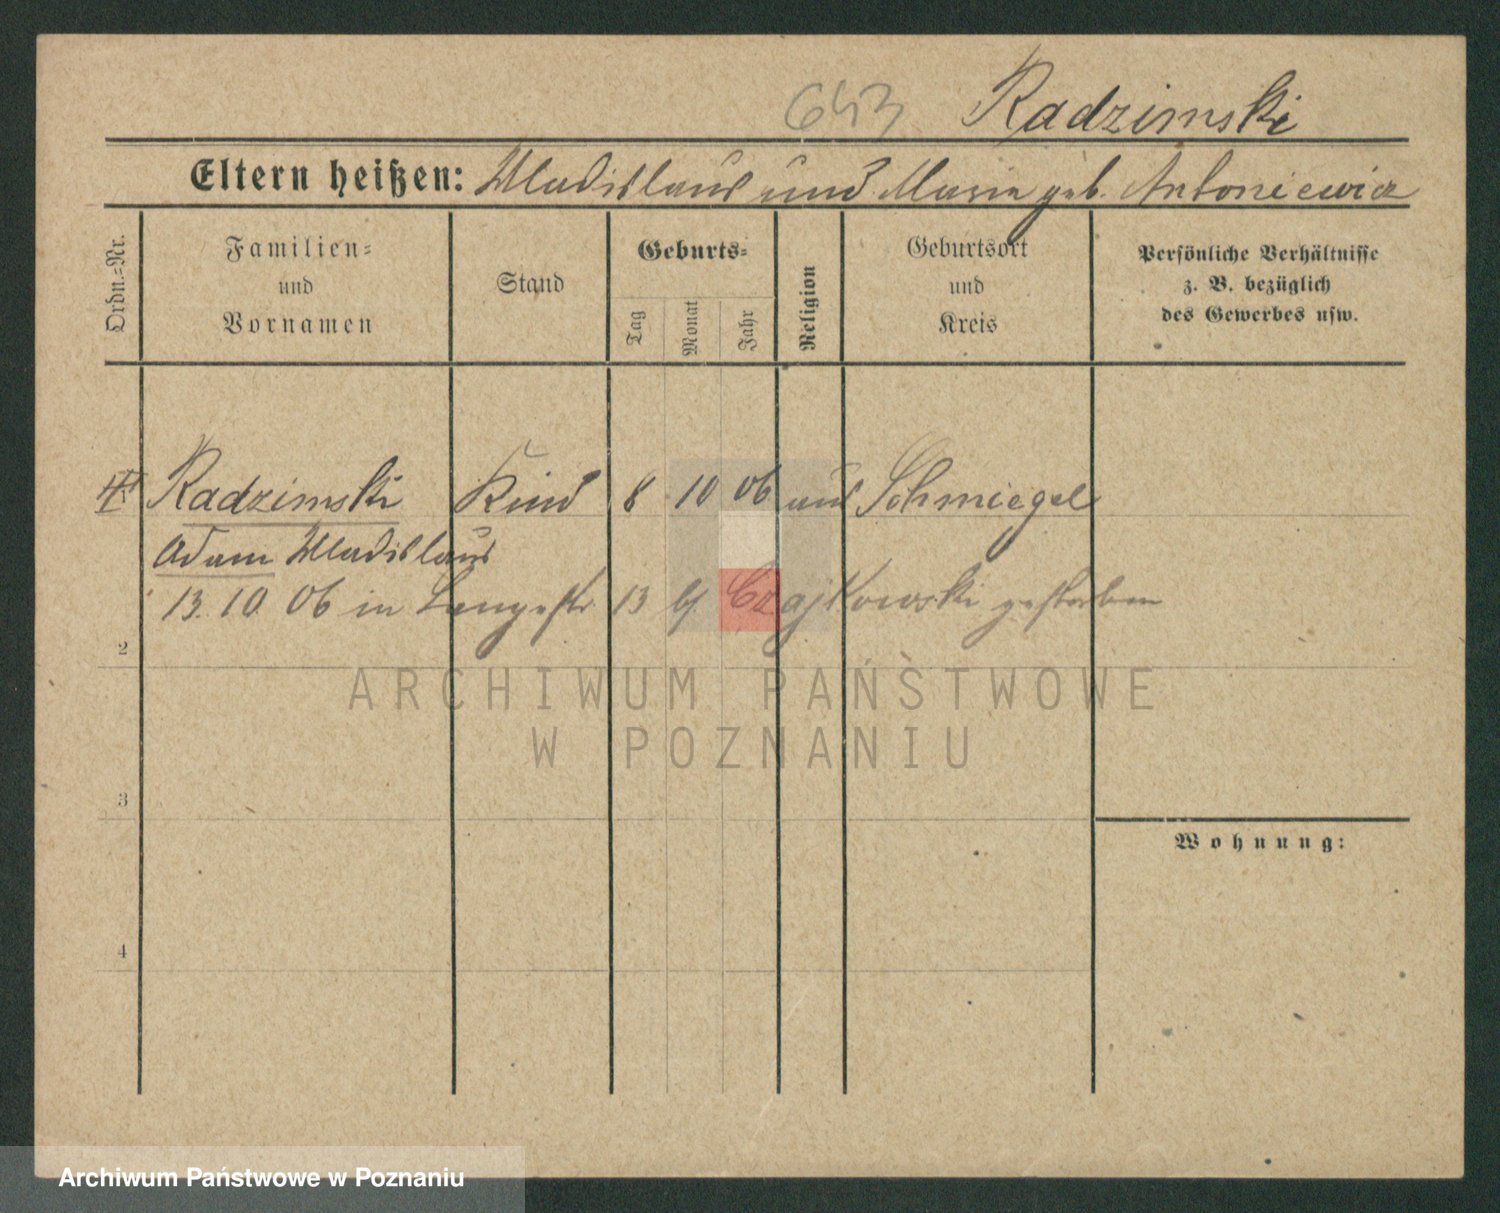 643 Radzimski
Eltern heißen: Wladislaus und Maria geb. Antoniewicz
Ordn.-Nr.
Familien-
und
Vornamen
Stand
Geburts-
Tag
Monat
Jahr
Religion
Geburtsort
und
Kreis
Persönliche Verhältnisse
z. B. bezüglich
des Gewerbes usw.
Radzimski Kind 8 10 06 aus Schmiegel
Adam Wladislaus
13. 10 06 in Langestr 13 bei Czajkowski gestorben
2
3
4
Wohnung:
ARCHIWUM PAŃSTWOWE
W POZNANIU
Archiwum Państwowe w Poznaniu